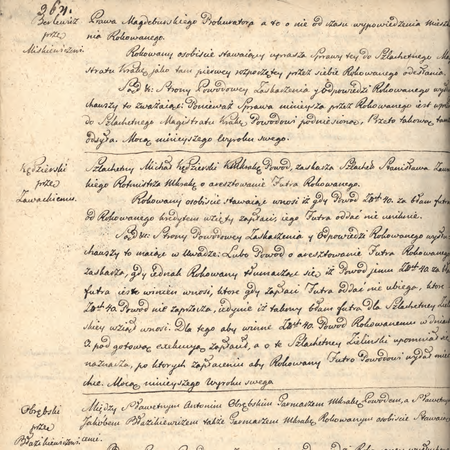 264.
Berlewicz
przez
Miskiewiczowi
Prawa Magdeburskiego Prokuratora a to o nie od czasu wypowiedzenia mieszka
nia Rokowanego.
Rokowany osobiście stawaiący uprasza Sprawy tey do Szlachetnego Magi
stratu Krako: jako tam pierwey rozpoczętey przez siebie Rokowanego odesłania.
Sąd W: Strony Powodowey Zaskarzenia y odpowiedzi Rokowanego wysłu
chawszy to zważaiąc: Ponieważ Sprawa ninieysza przez Rokowanego iest wprzód
do Szlachetnego Magistratu Krako: Powodowi podniesiona, Przeto takową tamże
odsyła. Mocą ninieyszego wyroku swego.
Kędzierski
przez
Zawackiemu.
Szlachetny Michał Kędzierski Powod, zaskarza Szlachet: Stanisława Zawac
kiego Rotmistrza o aresztowanie Futra Rokowanego.
Rokowany osobiście stawaiąc wnosi iż gdy Powod Złot: 40. za błam futra
od Rokowanego kredytem wzięty zapłaci, iego Futra oddać nie
Sąd W: Strony Powodowey Zaskarzenia y Odpowiedzi Rokowanego wysłu
chawszy to maiąc w Uwadze: Lubo Powod o aresztowanie Futra Rokowanego
zaskarza, gdy iednak Rokowany tłumacząc się iż Powod iemu Złot: 40. za błam
futra iest winien wnosi, ktore gdy zapłaci Futra oddać nie ubiega, ktore
Złot: 40. Powod nie zaprzecza, iedynie iż takowy błam futra dla Szlachetney Zieliń
skiey wziął wnosi. Dla tego aby winne Złot: 40. Powod Rokowanemu w dniach
3 pod gotową exekucyą zapłacił, a o te Szlachetney Zielinski upomniał się
naznacza, po ktorych zapłaceniu aby Rokowany Futro Powodowi wydał nie
chce. Mocą ninieyszego Wyroku swego
Obrębski
przez
Błażikiewiczowi
Między Sławetnym Antonim Obrębskim Garncarzem Powodem, a Sławetnym
Jakóbem Błażikiewiczem także Garncarzem Rokowanym osobiście Stawaią
cemi.